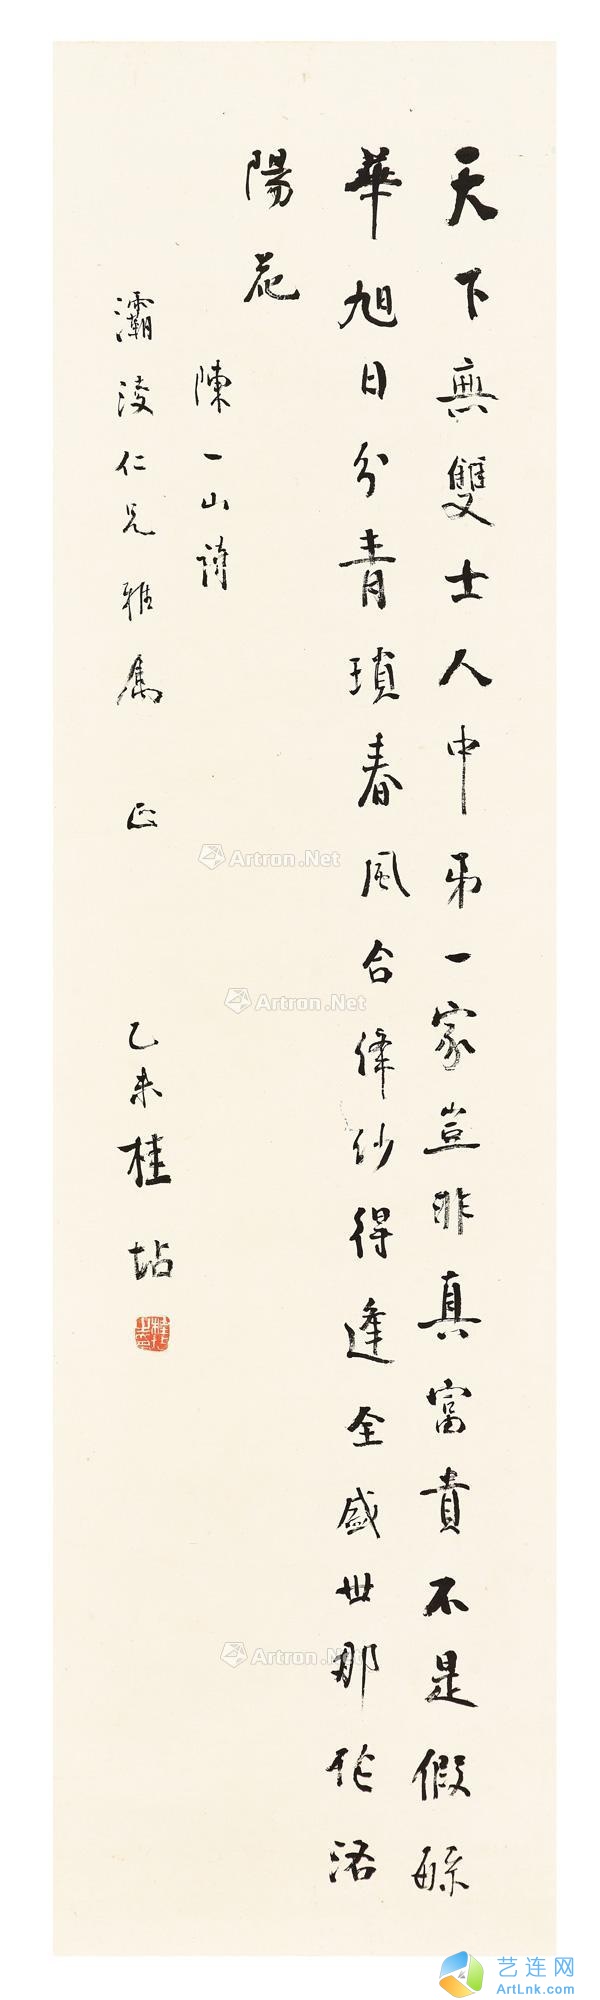 天下無雙士人中弟一家豈非真富貴不是假緐
華旭日分青瑣春風合絳紗得逢全盛世那作洛
陽花
陳一山詩
灞淩仁兄雅屬 正 乙未桂坫
Artron.Net
Artron.Net
Artron.Net
艺连网
ArtLnk.com